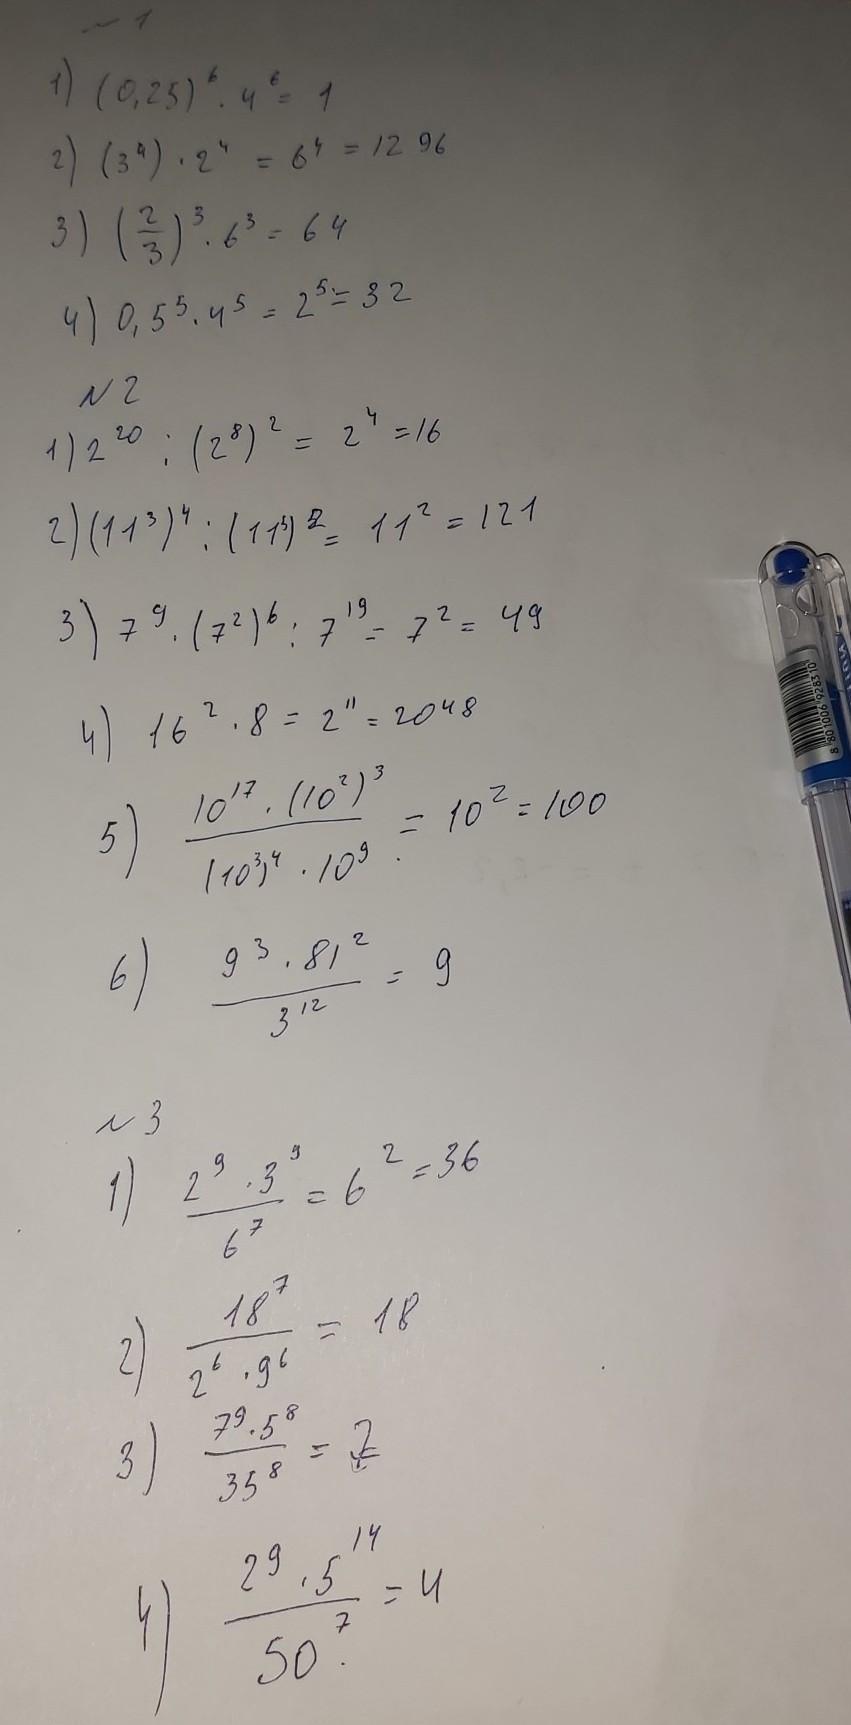 № 1
1) (0,25)⁶ · 4⁶ = 1
2) (3⁴) · 2⁴ = 6⁴ = 1296
3) (2/3)³ · 6³ = 64
4) 0,5⁵ · 4⁵ = 2⁵ = 32
№ 2
1) 2²⁰ : (2⁸)² = 2⁴ = 16
2) (11³)⁴ : (11⁵)² = 11² = 121
3) 7⁹ · (7²)⁶ : 7¹⁹ = 7² = 49
4) 16² · 8 = 2¹¹ = 2048
5) (10¹⁷ · (10²)³) / ((10³)⁴ · 10⁹) = 10² = 100
6) (9³ · 81²) / 3¹² = 9
№ 3
1) (2⁹ · 3⁹) / 6⁷ = 6² = 36
2) 18⁷ / (2⁶ · 9⁶) = 18
3) (7⁹ · 5⁸) / 35⁸ = 7
4) (2⁹ · 5¹⁴) / 50⁷ = 4
8 801006 928310